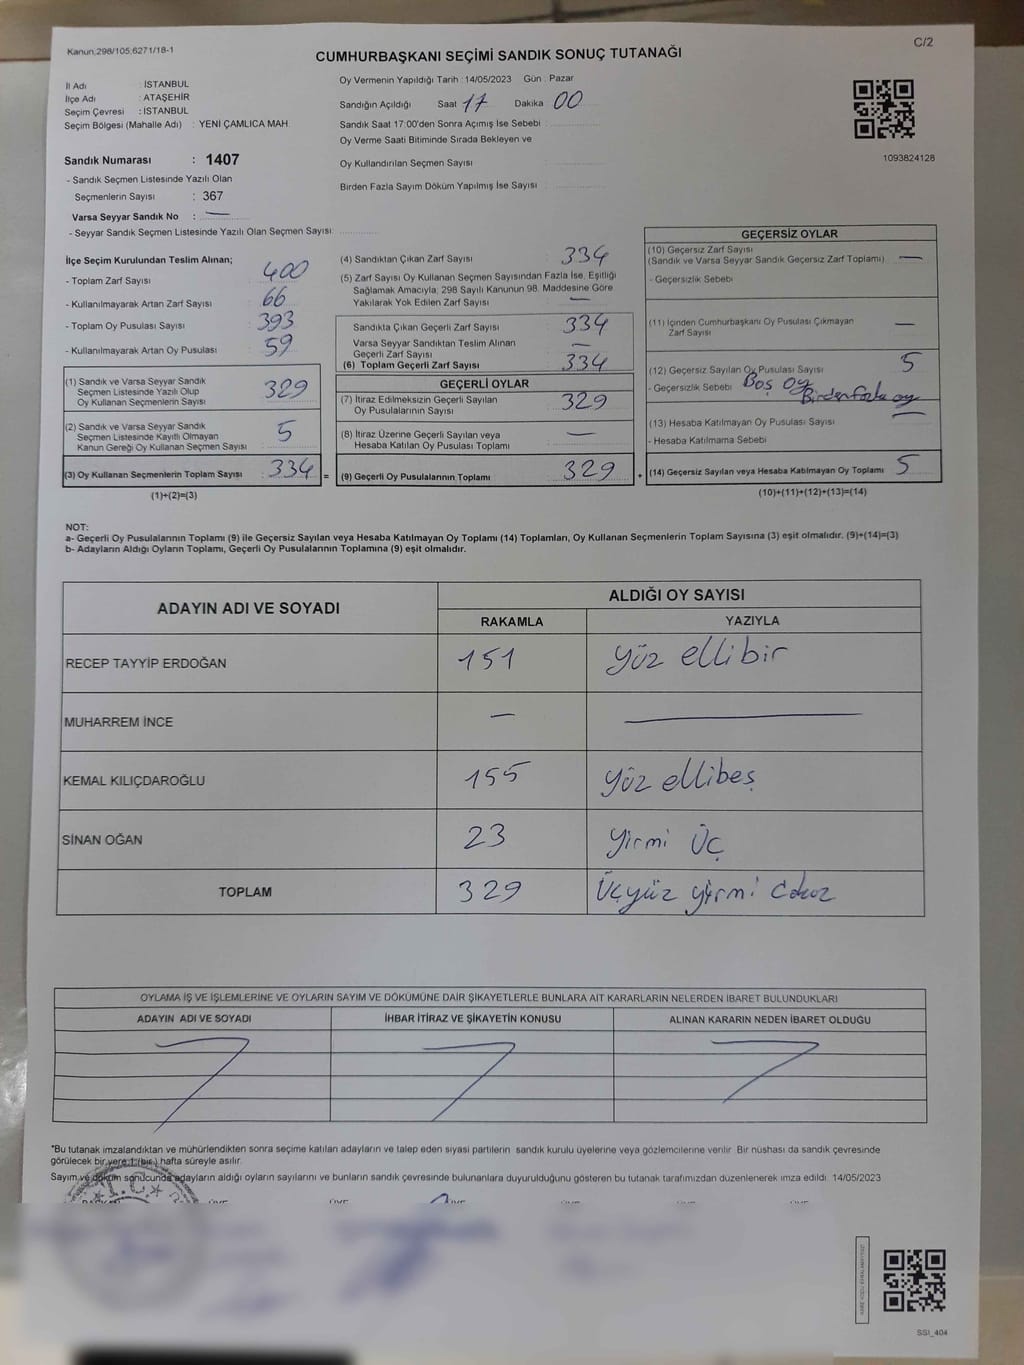 Kanun:298/105,6271/18-1
C/2
CUMHURBAŞKANI SEÇİMİ SANDIK SONUÇ TUTANAĞI
İl Adı : İSTANBUL
İlçe Adı : ATAŞEHİR
Seçim Çevresi : İSTANBUL
Seçim Bölgesi (Mahalle Adı) : YENİ ÇAMLICA MAH.
Sandık Numarası : 1407
- Sandık Seçmen Listesinde Yazılı Olan
Seçmenlerin Sayısı : 367
Varsa Seyyar Sandık No : —
- Seyyar Sandık Seçmen Listesinde Yazılı Olan Seçmen Sayısı:
Oy Vermenin Yapıldığı Tarih : 14/05/2023 Gün : Pazar
Sandığın Açıldığı Saat 17 Dakika 00
Sandık Saat 17:00'den Sonra Açımış İse Sebebi :
Oy Verme Saati Bitiminde Sırada Bekleyen ve
Oy Kullandırılan Seçmen Sayısı :
Birden Fazla Sayım Döküm Yapılmış İse Sayısı :
1093824128
İlçe Seçim Kurulundan Teslim Alınan;
- Toplam Zarf Sayısı : 400
- Kullanılmayarak Artan Zarf Sayısı : 66
- Toplam Oy Pusulası Sayısı : 393
- Kullanılmayarak Artan Oy Pusulası : 59
(1) Sandık ve Varsa Seyyar Sandık
Seçmen Listesinde Yazılı Olup
Oy Kullanan Seçmenlerin Sayısı : 329
(2) Sandık ve Varsa Seyyar Sandık
Seçmen Listesinde Kayıtlı Olmayan
Kanun Gereği Oy Kullanan Seçmen Sayısı : 5
(3) Oy Kullanan Seçmenlerin Toplam Sayısı : 334
(1)+(2)=(3)
=
(4) Sandıktan Çıkan Zarf Sayısı : 334
(5) Zarf Sayısı Oy Kullanan Seçmen Sayısından Fazla İse, Eşitliği
Sağlamak Amacıyla; 298 Sayılı Kanunun 98. Maddesine Göre
Yakılarak Yok Edilen Zarf Sayısı : —
Sandıkta Çıkan Geçerli Zarf Sayısı : 334
Varsa Seyyar Sandıktan Teslim Alınan
Geçerli Zarf Sayısı : —
(6) Toplam Geçerli Zarf Sayısı : 334
GEÇERLİ OYLAR
(7) İtiraz Edilmeksizin Geçerli Sayılan
Oy Pusulalarının Sayısı : 329
(8) İtiraz Üzerine Geçerli Sayılan veya
Hesaba Katılan Oy Pusulası Toplamı : —
(9) Geçerli Oy Pusulalarının Toplamı : 329
+
GEÇERSİZ OYLAR
(10) Geçersiz Zarf Sayısı
(Sandık ve Varsa Seyyar Sandık Geçersiz Zarf Toplamı) : —
- Geçersizlik Sebebi
(11) İçinden Cumhurbaşkanı Oy Pusulası Çıkmayan
Zarf Sayısı : —
(12) Geçersiz Sayılan Oy Pusulası Sayısı : 5
- Geçersizlik Sebebi Boş Oy
Birden fazla oy
(13) Hesaba Katılmayan Oy Pusulası Sayısı : —
- Hesaba Katılmama Sebebi
(14) Geçersiz Sayılan veya Hesaba Katılmayan Oy Toplamı : 5
(10)+(11)+(12)+(13)=(14)
NOT:
a- Geçerli Oy Pusulalarının Toplamı (9) ile Geçersiz Sayılan veya Hesaba Katılmayan Oy Toplamı (14) Toplamları, Oy Kullanan Seçmenlerin Toplam Sayısına (3) eşit olmalıdır. (9)+(14)=(3)
b- Adayların Aldığı Oyların Toplamı, Geçerli Oy Pusulalarının Toplamına (9) eşit olmalıdır.
ADAYIN ADI VE SOYADI
ALDIĞI OY SAYISI
RAKAMLA YAZIYLA
RECEP TAYYİP ERDOĞAN 151 Yüz ellibir
MUHARREM İNCE — —
KEMAL KILIÇDAROĞLU 155 Yüz ellibeş
SİNAN OĞAN 23 Yirmi Üç
TOPLAM 329 Üçyüz yirmi
OYLAMA İŞ VE İŞLEMLERİNE VE OYLARIN SAYIM VE DÖKÜMÜNE DAİR ŞİKAYETLERLE BUNLARA AİT KARARLARIN NELERDEN İBARET BULUNDUKLARI
ADAYIN ADI VE SOYADI İHBAR İTİRAZ VE ŞİKAYETİN KONUSU ALINAN KARARIN NEDEN İBARET OLDUĞU
*Bu tutanak imzalandıktan ve mühürlendikten sonra seçime katılan adayların ve talep eden siyasi partilerin sandık kurulu üyelerine veya gözlemcilerine verilir. Bir nüshası da sandık çevresinde
görülecek bir yere 1 (bir) hafta süreyle asılır.
Sayım ve döküm sonucunda adayların aldığı oyların sayılarını ve bunların sandık çevresinde bulunanlara duyurulduğunu gösteren bu tutanak tarafımızdan düzenlenerek imza edildi. 14/05/2023
T.C.
SSI_404